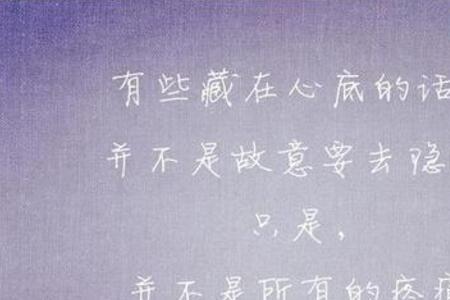 有些藏在心底的话
并不是故意要去隐
只是,
并不是所有的疼